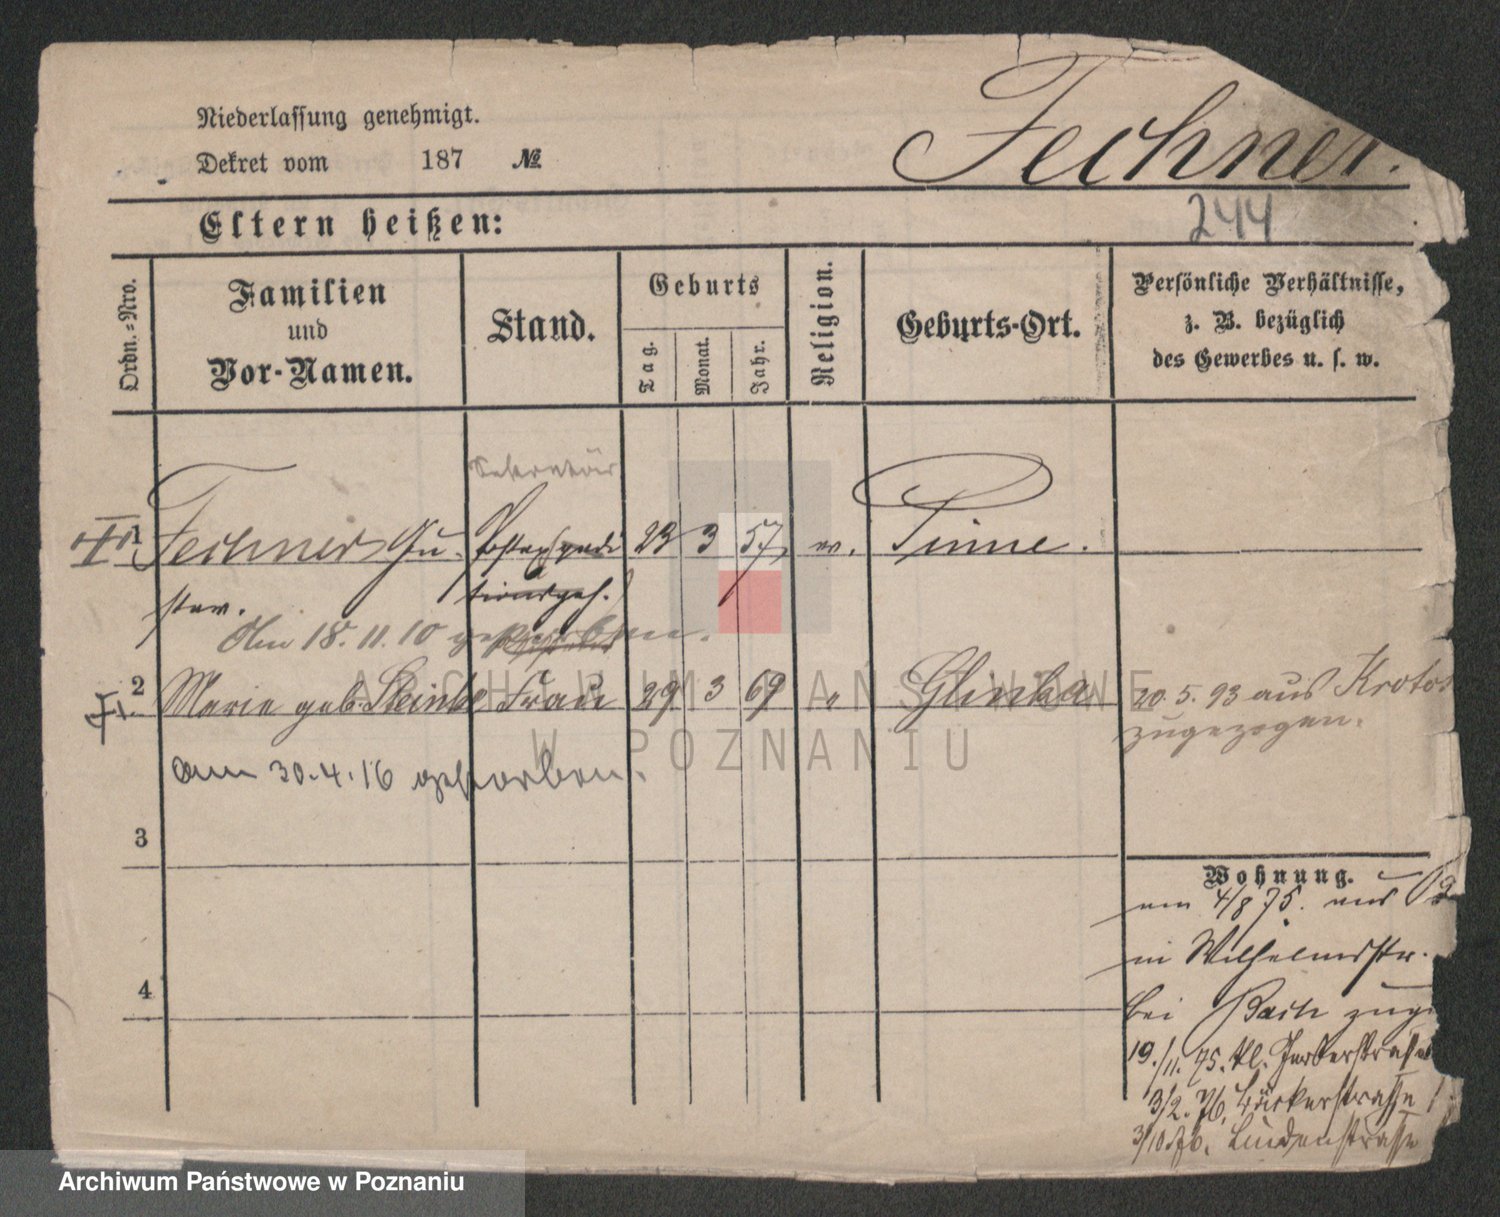 Niederlassung genehmigt.
Dekret vom 187 №
Fechner.
244
Eltern heißen:
Ordn.-Nro.
Familien
und
Vor-Namen.
Stand.
Geburts
Tag.
Monat.
Jahr.
Religion.
Geburts-Ort.
Persönliche Verhältnisse,
z. B. bezüglich
des Gewerbes u. s. w.
Sekretär
1 Fechner Gu- Postexpedi 23 3 57 ev. Pinne.
stav. tionsgeh.
Am 18.11.10 gestorben.
2 Marie geb. Frau 29 3 69 " Glinka 20.5.93 aus Krotos
zugezogen.
am 30.4.16 gestorben.
3
4
Wohnung.
am 4/8 75. aus
in Wilhelmstr.
bei Bach zug
19./11. 75. Gerberstrasse
3/2. 76. Bäckerstrasse
3/10 76. Lindenstrasse
ARCHIWUM PAŃSTWOWE
W POZNANIU
Archiwum Państwowe w Poznaniu